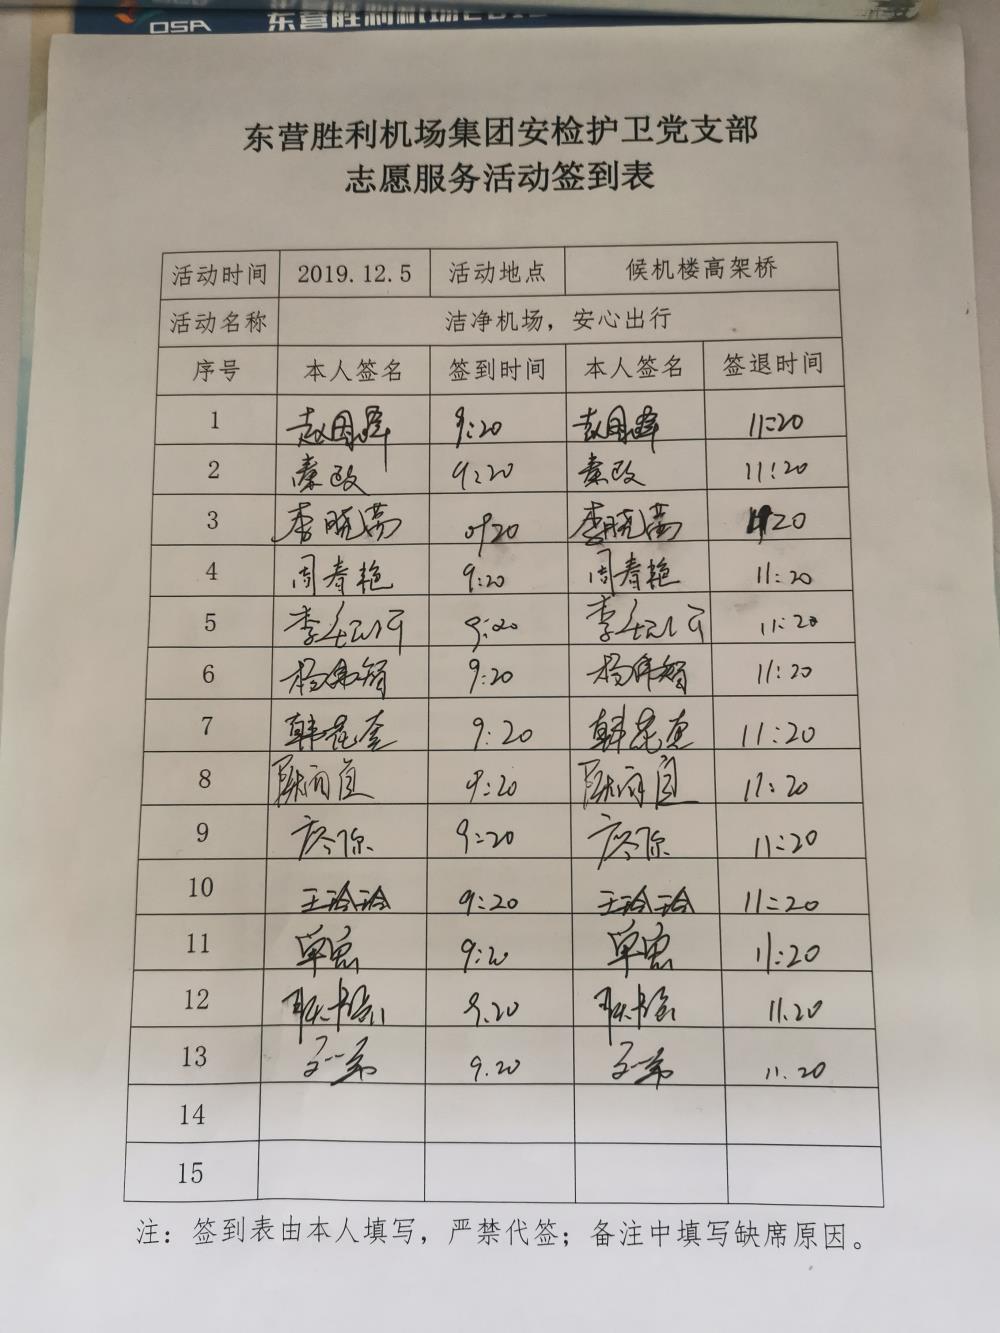 OSA
东营胜利机场集团安检护卫党支部
志愿服务活动签到表
活动时间 2019.12.5 活动地点 候机楼高架桥
活动名称 洁净机场，安心出行
序号 本人签名 签到时间 本人签名 签退时间
1 9:20 11:20
2 秦政 9:20 秦政 11:20
3 李晓 0920 李晓 1120
4 周春艳 9:20 周春艳 11:20
5 李 9:20 李 11:20
6 杨伟智 9:20 杨伟智 11:20
7 韩 9:20 韩 11:20
8 9:20 11:20
9 9:20 11:20
10 王玲玲 9:20 王玲玲 11:20
11 单忠 9:20 单忠 11:20
12 9.20 11.20
13 9.20 11.20
14
15
注：签到表由本人填写，严禁代签；备注中填写缺席原因。